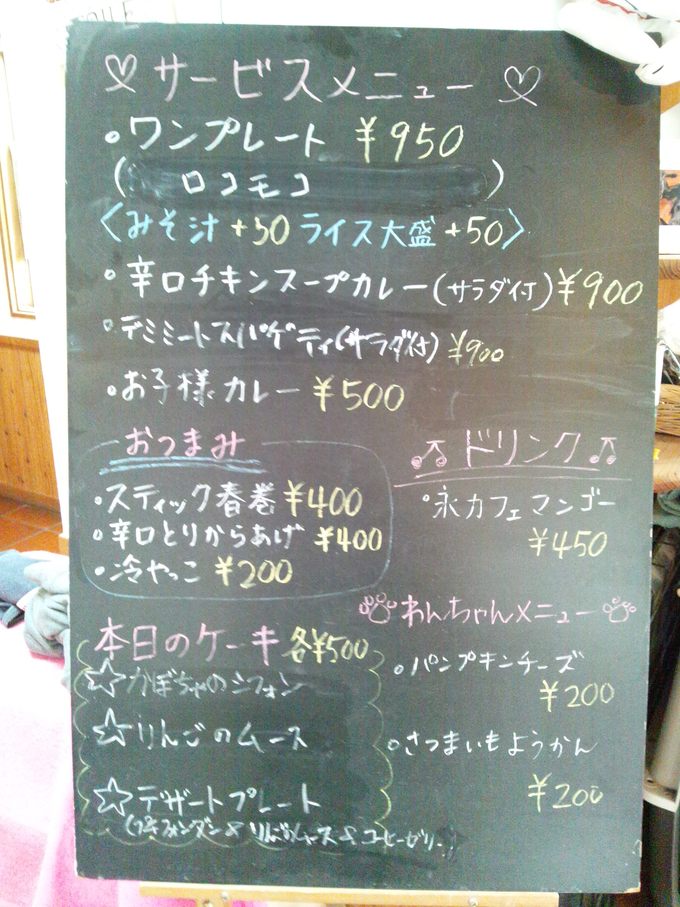 サービスメニュー
・ワンプレート ¥950
( ロコモコ )
〈みそ汁+50 ライス大盛+50〉
・辛口チキンスープカレー(サラダ付)¥900
・デミミートスパゲティ(サラダ付)¥900
・お子様カレー ¥500
おつまみ
・スティック春巻 ¥400
・辛口とりからあげ ¥400
・冷やっこ ¥200
♫ ドリンク ♫
・氷カフェマンゴー
¥450
本日のケーキ 各¥500
☆かぼちゃのシフォン
☆りんごのムース
☆デザートプレート
わんちゃんメニュー
・パンプキンチーズ
¥200
・さつまいもようかん
¥200